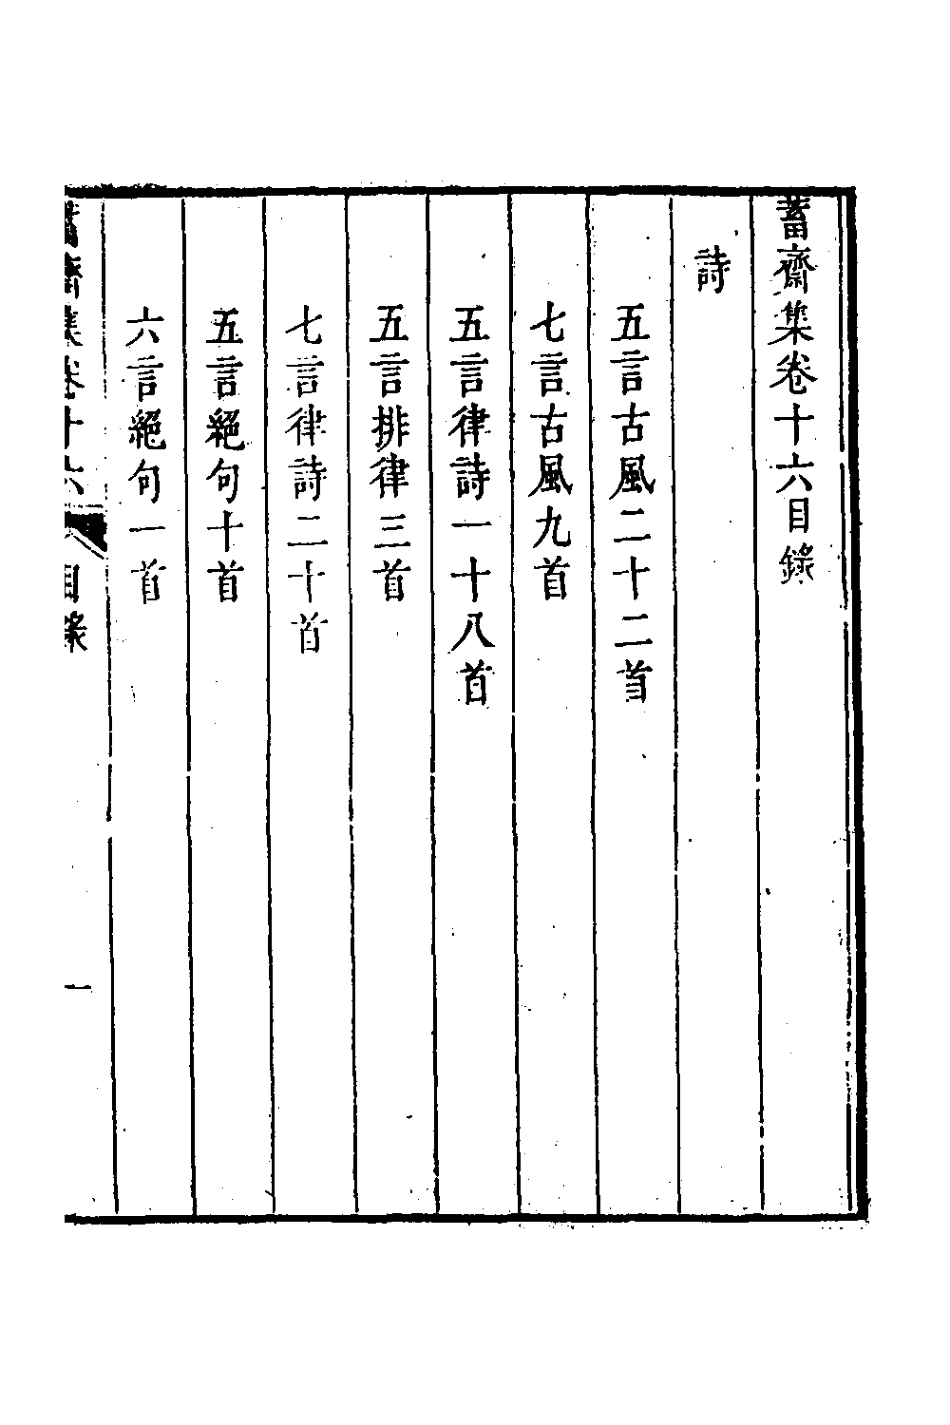 蓄齋集卷十六目錄
詩
五言古風二十二首
七言古風九首
五言律詩一十八首
五言排律三首
七言律詩二十首
五言絕句十首
六言絕句一首
蓄齋集卷十六 目錄 一